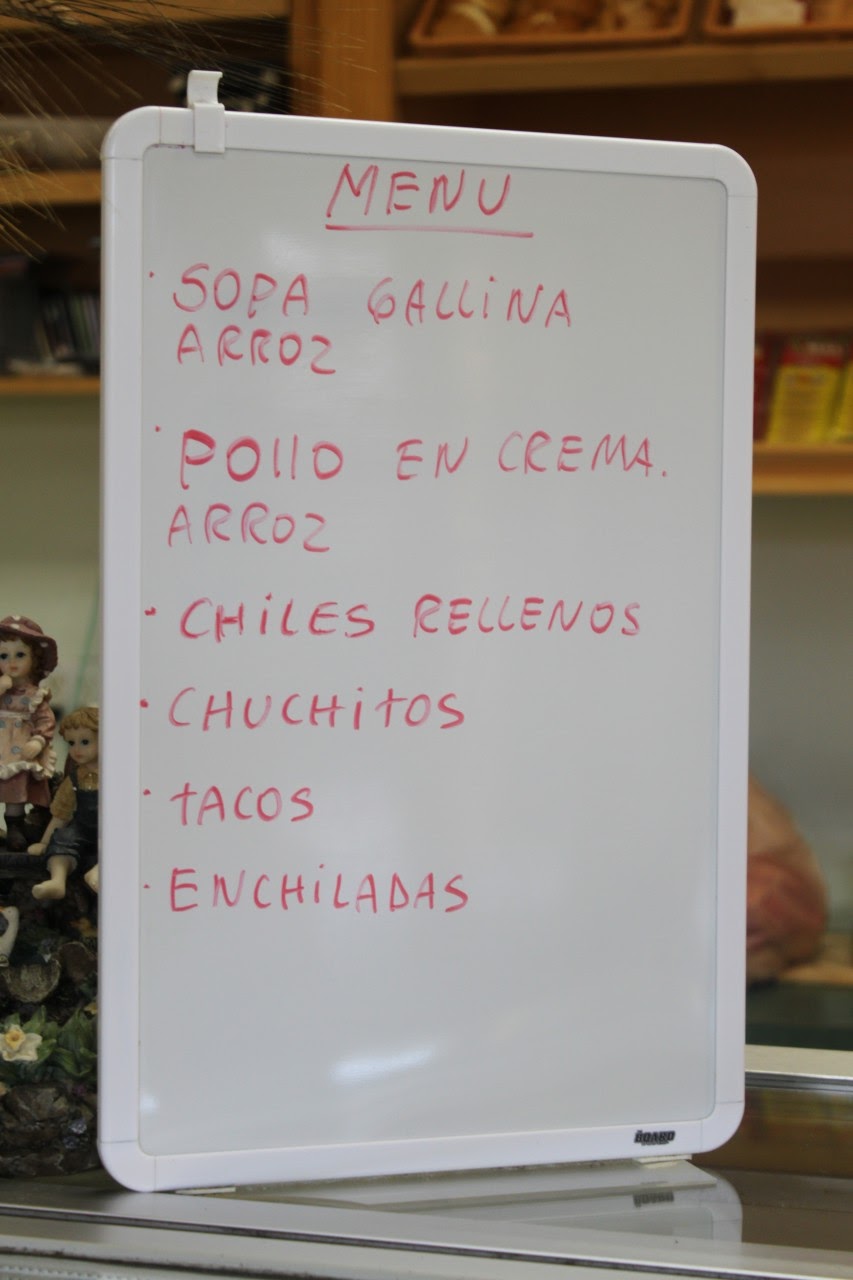 MENU
SOPA GALLINA
ARROZ
POLLO EN CREMA.
ARROZ
CHILES RELLENOS
CHUCHITOS
TACOS
ENCHILADAS
BOARD